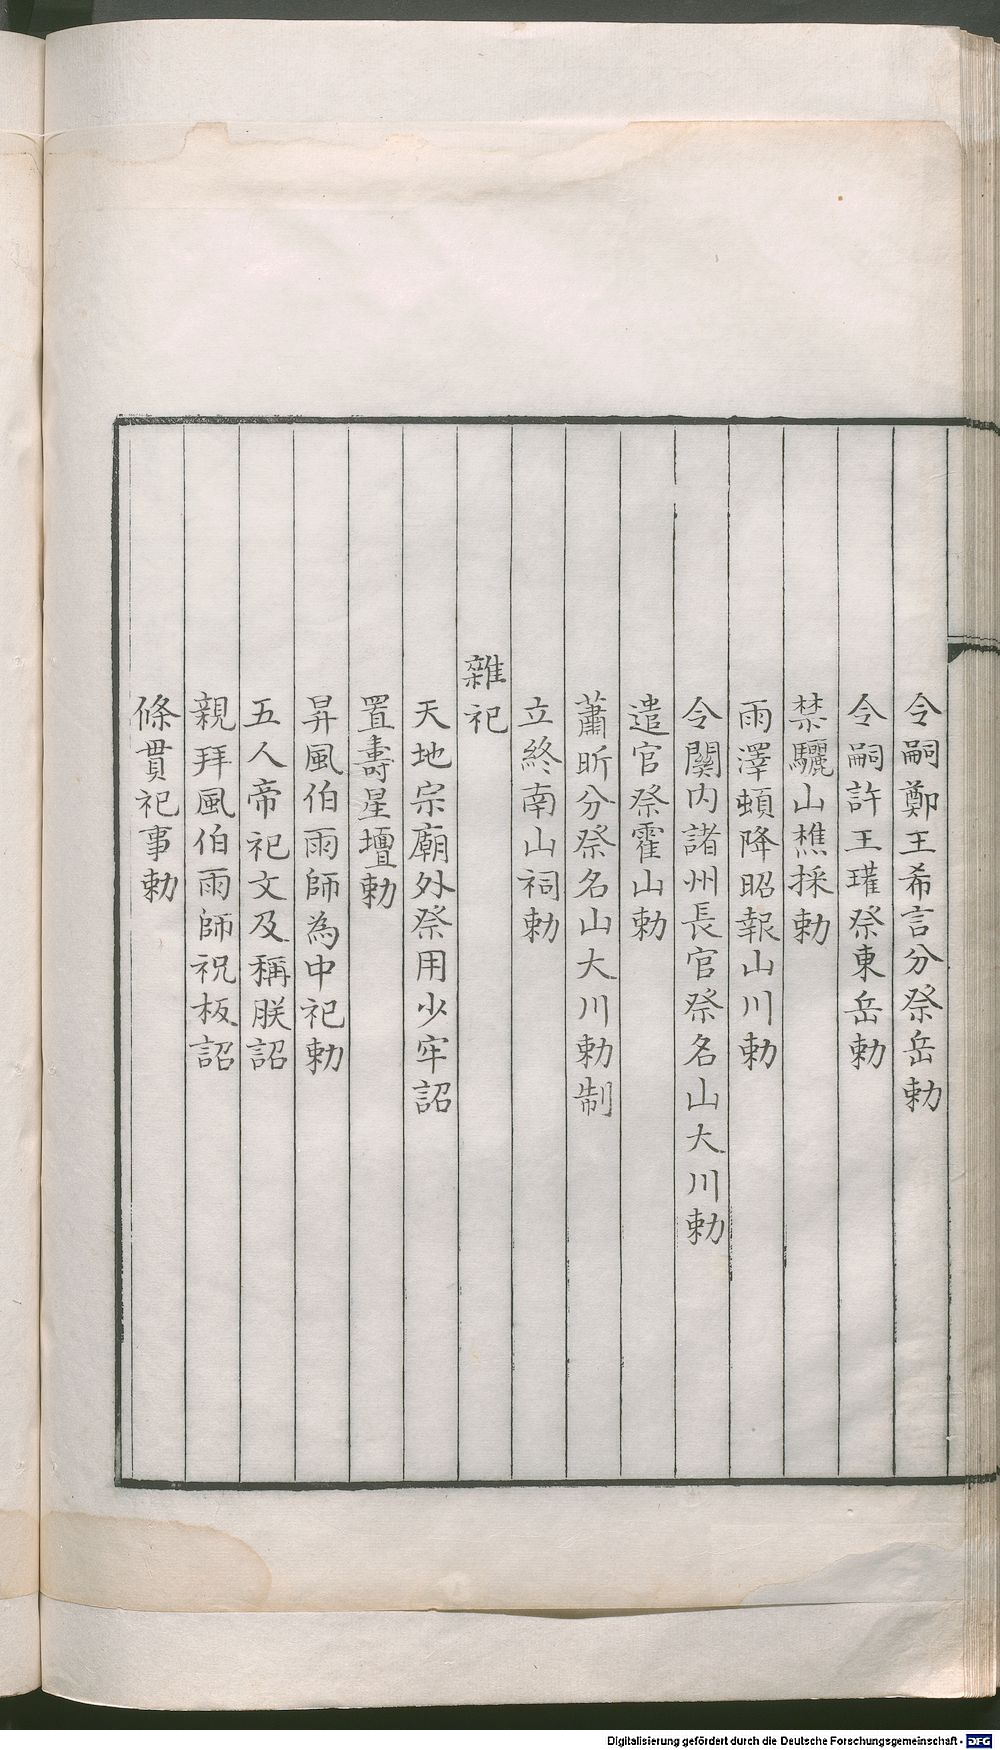 令嗣鄭王希言分祭岳勅
令嗣許王瓘祭東岳勅
禁驪山樵採勅
雨澤頓降昭報山川勅
令關内諸州長官祭名山大川勅
遣官祭霍山勅
蕭昕分祭名山大川勅制
立終南山祠勅
雜祀
天地宗廟外祭用少牢詔
置壽星壇勅
昇風伯雨師為中祀勅
五人帝祀文及稱朕詔
親拜風伯雨師祝板詔
條貫祀事勅
Digitalisierung gefördert durch die Deutsche Forschungsgemeinschaft - DFG